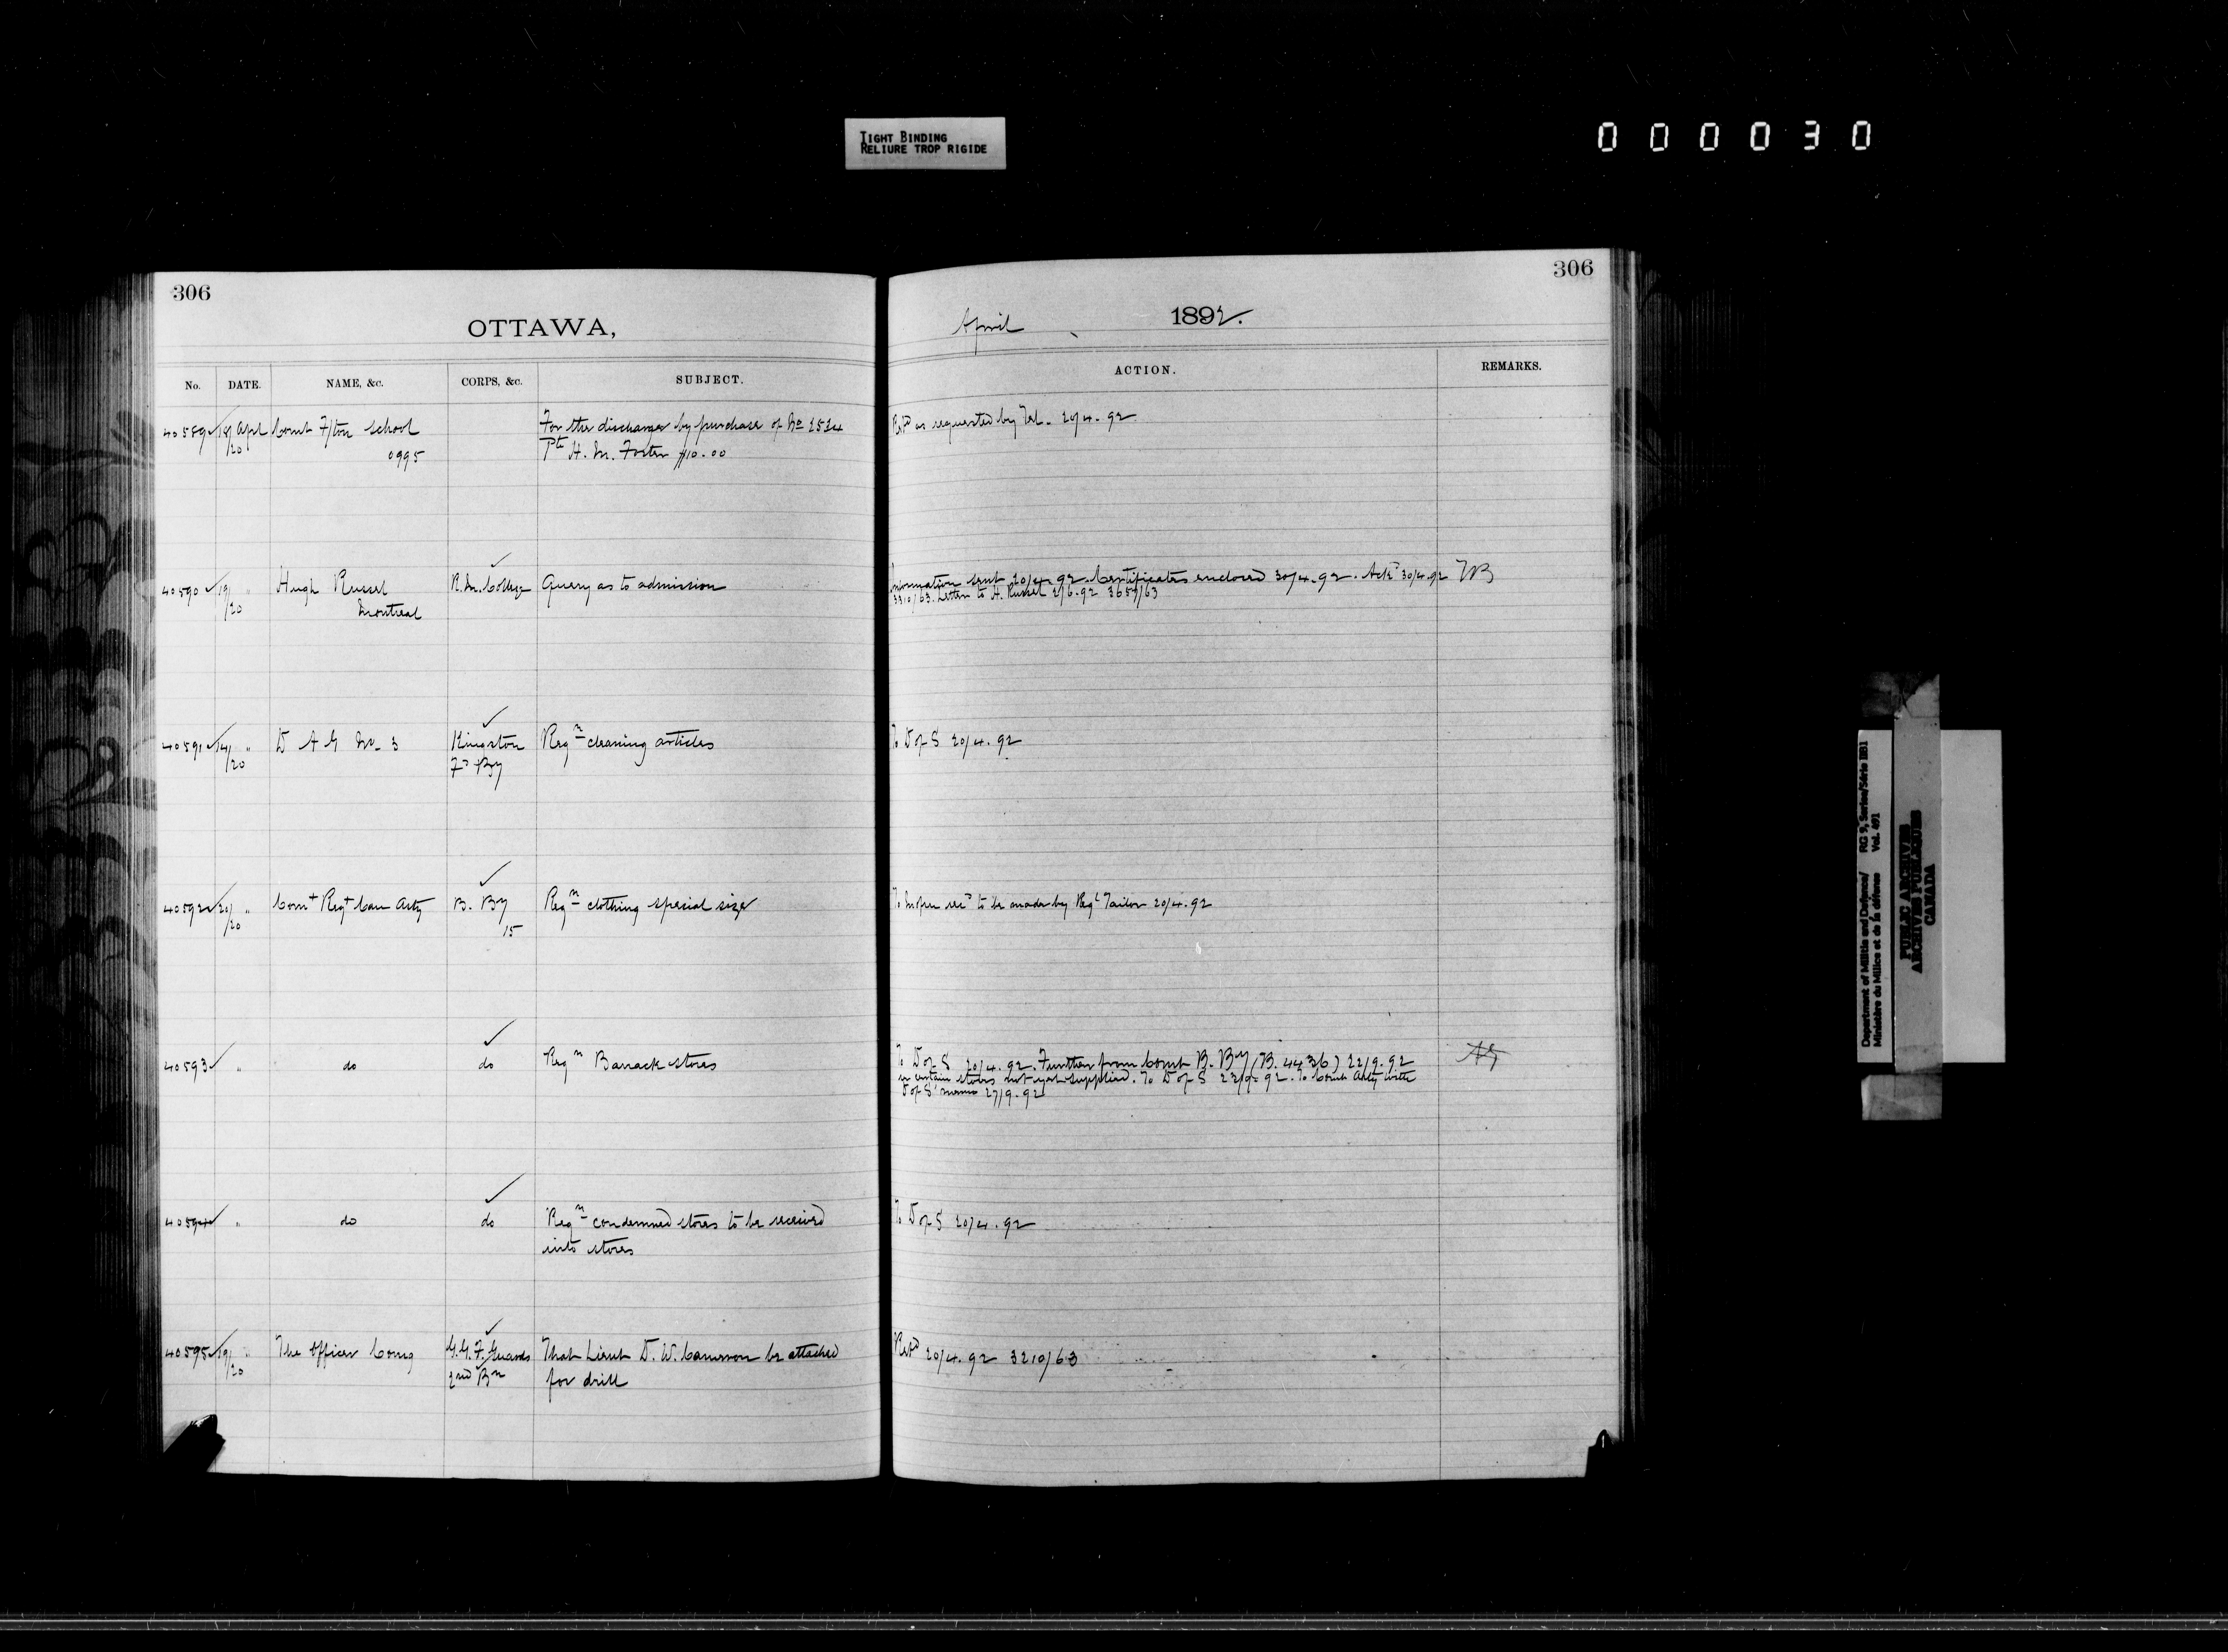 TIGHT BINDING
RELIURE TROP RIGIDE
000030
306
OTTAWA,
No. DATE. NAME, &c. CORPS, &c. SUBJECT.
40589 18/20 Apl Comt F/ton School For the discharge by purchase of No 2524
0995 Pte H. M. Foster $10.00
40590 19/20 " Hugh Russel R. M. College Query as to admission
Montreal
40591 14/20 " D A G No. 3 Kingston Reqn cleaning articles
Fd By
40592 20/20 " Comt Regt Can Arty B. By Reqn clothing special size
15
40593 " do do Reqn Barrack stores
40594 " do do Reqn condemned stores to be received
into stores
40595 19/20 " The Officer Comg G. G. F. Guards That Lieut D. W. Cameron be attached
2nd Bn for drill
306
April 1892.
ACTION. REMARKS.
as requested by Tel. 20/4.92
Information sent 20/4.92. Certificates enclosed 30/4.92. Ackd 30/4.92
3310/63. Letter to H. Russel 2/6.92 3659/63
To D of S 20/4.92
to be made by Regl Tailor 20/4.92
To D of S 20/4.92. Further from Comt B. By (B. 4436) 22/9.92
certain stores not yet supplied. To D of S 22/9.92. To Comt Arty with
D of S' memo 27/9.92
To D of S 20/4.92
20/4.92 3210/63
Department of Militia and Defence/ RG 9, Series/Série IIB1
Ministère du Milice et de la défence Vol. 491
PUBLIC ARCHIVES
ARCHIVES PUBLIQUES
CANADA